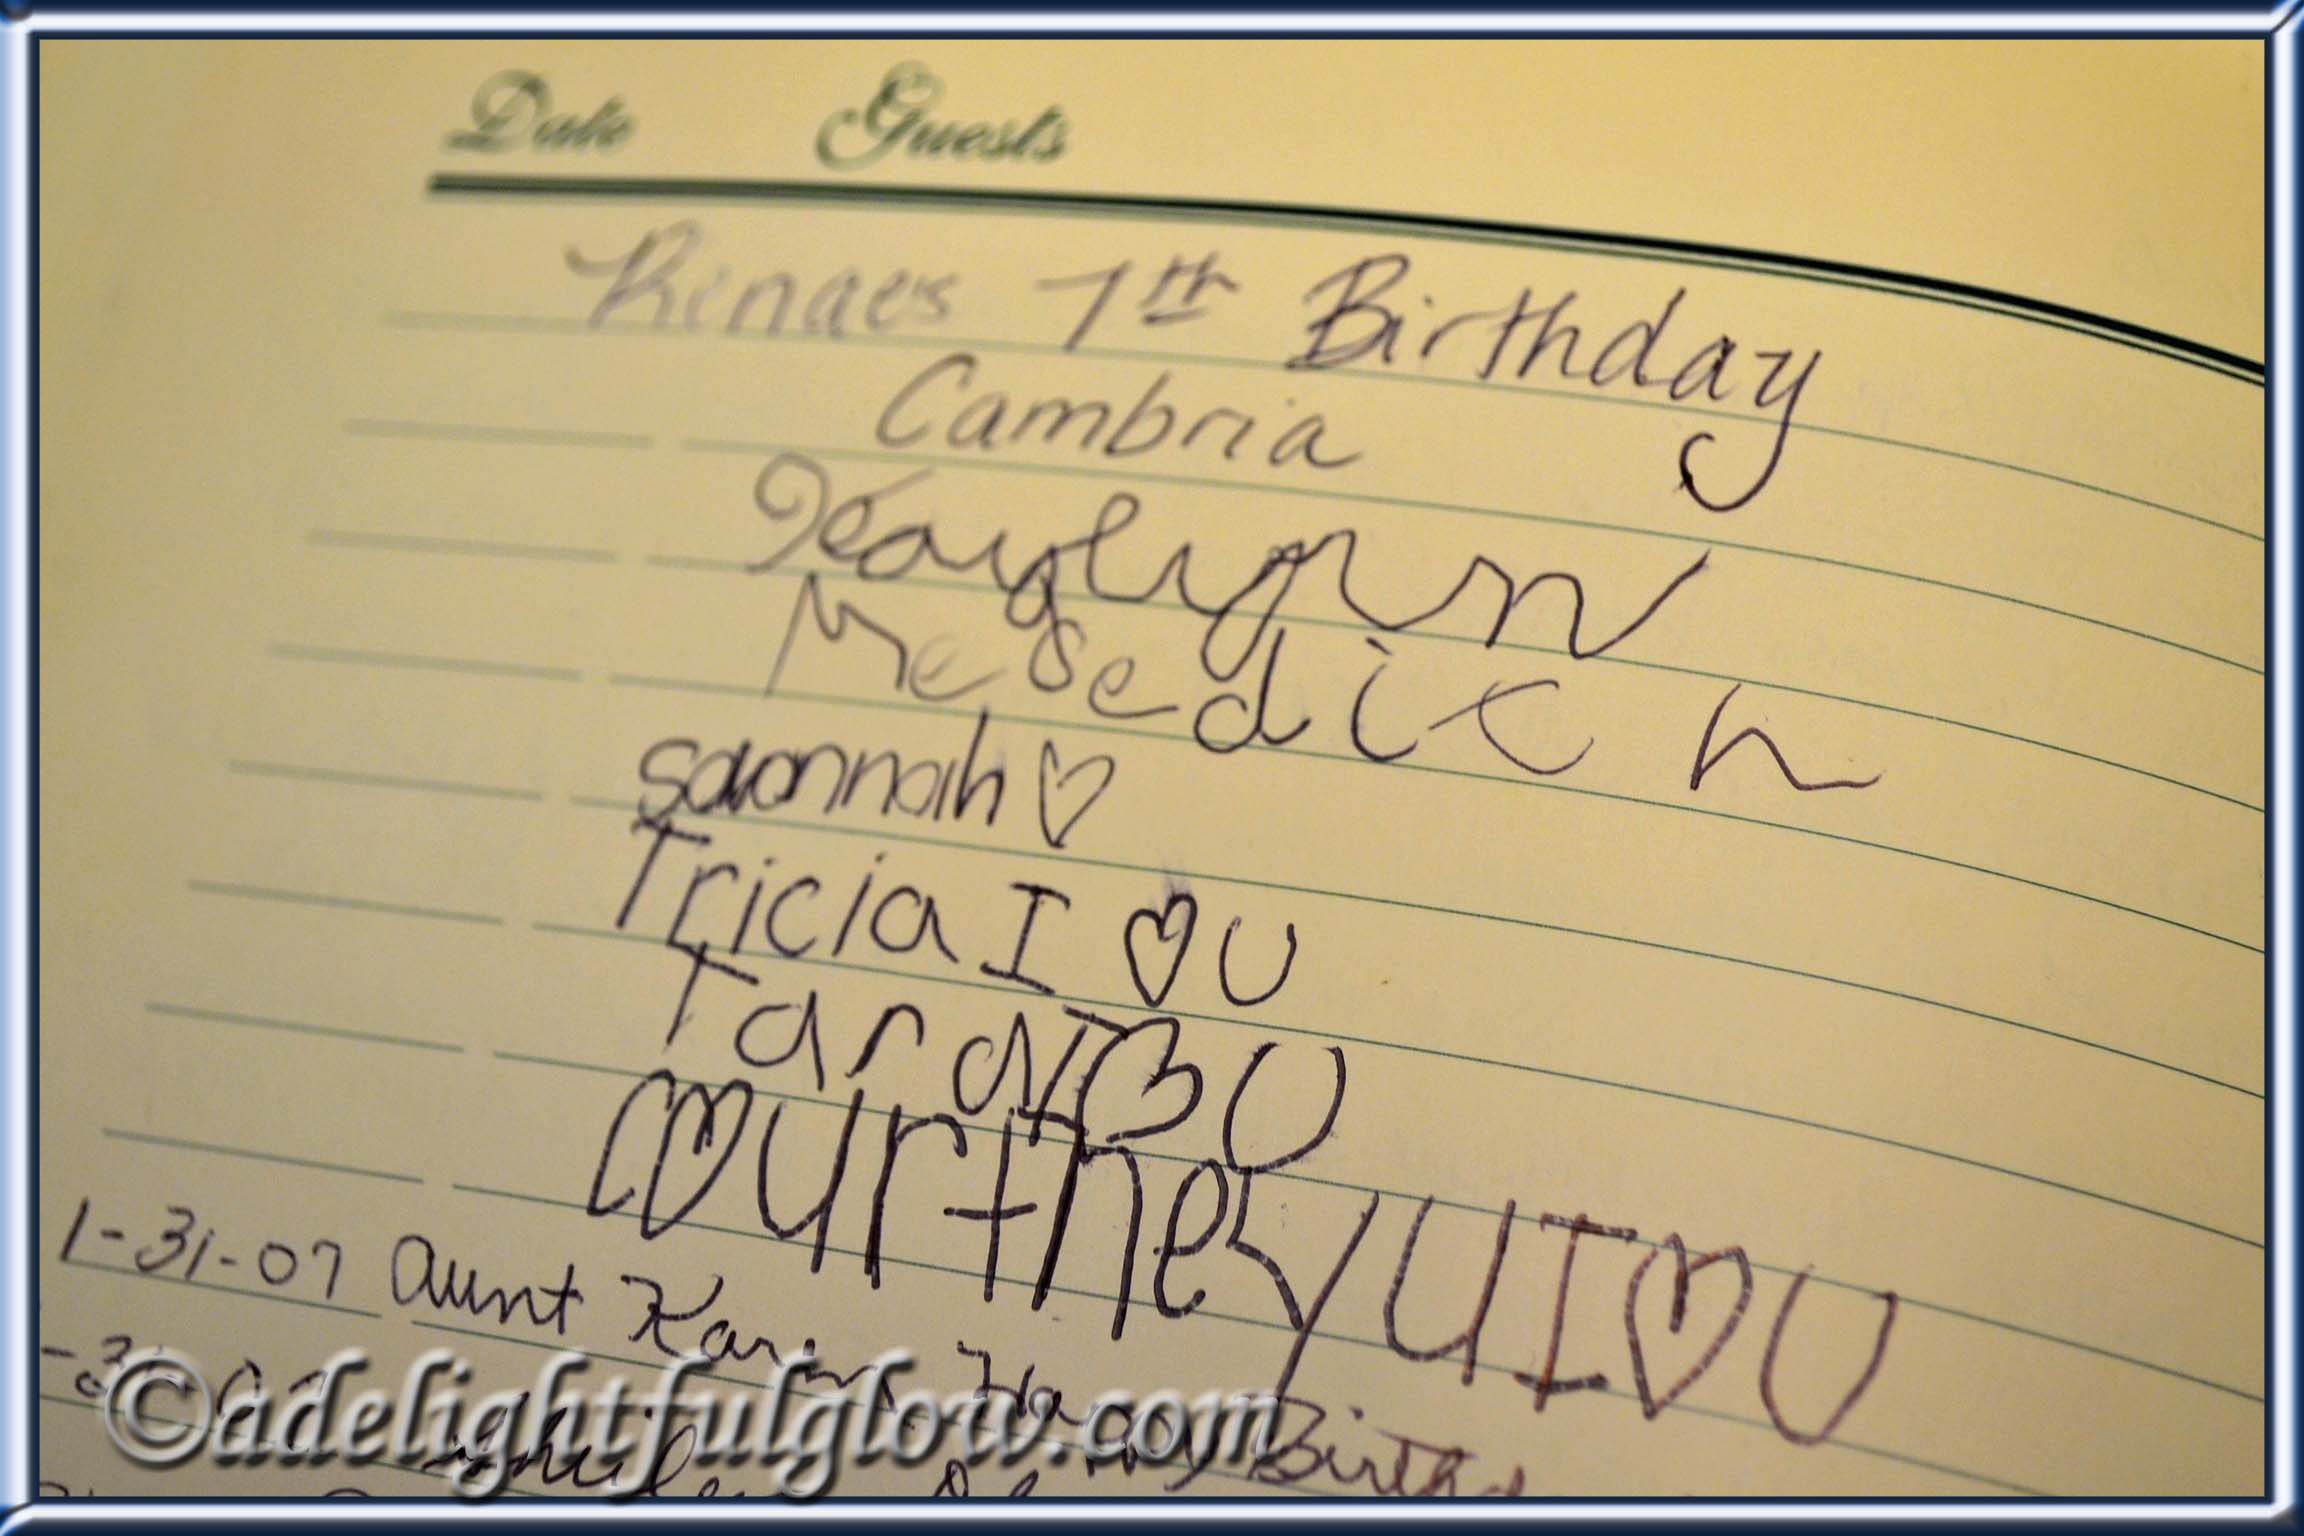 Date Guests
Renaes 7th Birthday
Cambria
Kaylynn
Meredith
savannah ♡
Tricia I ♡ U
Tara I ♡ U
Courtney U I ♡ U
1-31-07 Aunt Karin Happy Birthd
©adelightfulglow.com